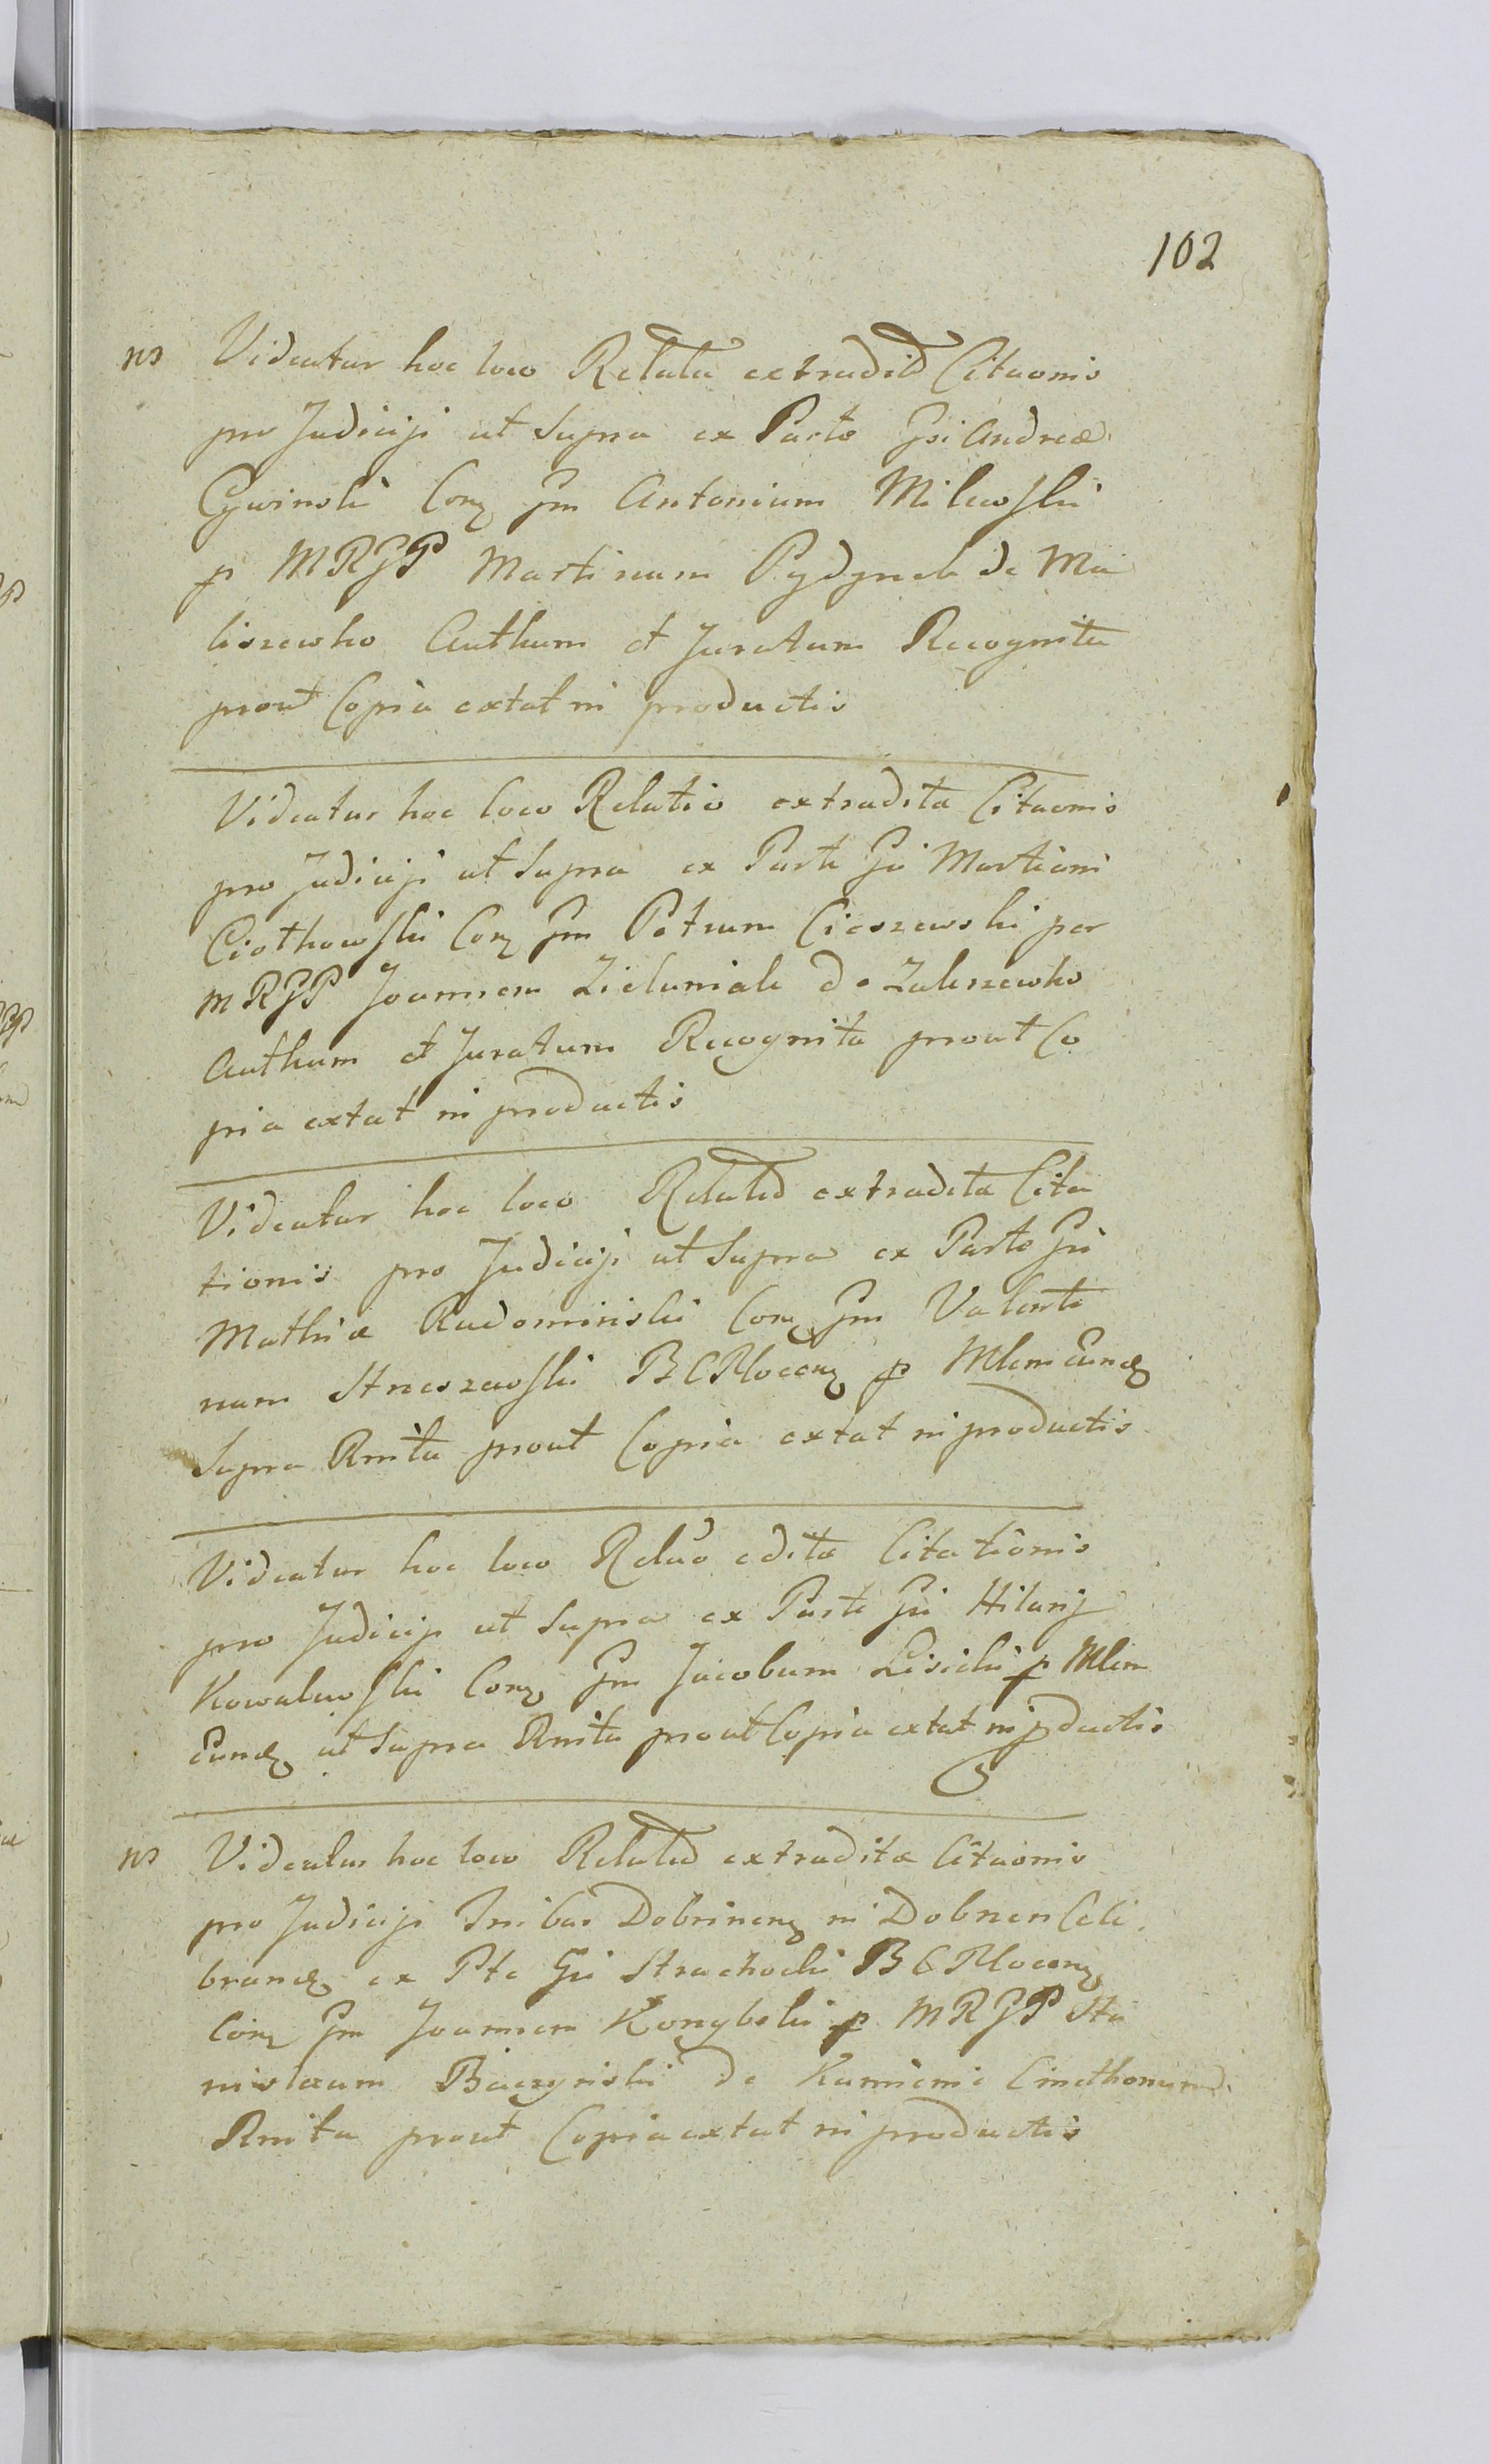 102
ns Videatur hoc loco Relatio extradit Citaonis
pro Judicijs ut Supra ex Parte Gsi Andreæ
Cywinski Conz Gm Antonium Milewski
p MRGP Martinum Pydynek de Ma
liszewko Authum et Juratum Recognita
prout Copia extat in productis
Videatur hoc loco Relatio extradita Citaonis
pro Judicijs ut Supra ex Parte Gsi Martiani
Ciotkowski Conz Gm Petrum Cieszewski per
MRGP Joannem Zieluniak de Zaleszewko
Authum et Juratum Recognita prout Co
pia extat in productis
Videatur hoc loco Relatio extradita Cita
tionis pro Judicijs ut Supra ex Parte Gsi
Mathiæ Radominski Conz Gm Valenti
num Strzeszewski BCPlocenz p Mlem Eundz
Supra Rnita prout Copia extat in productis
Videatur hoc loco Relao editæ Citationis
pro Judicijs ut Supra ex Parte Gsi Hilarij
Kowalewski Conz Gm Jacobum Lisicki p Mlem
Eundz ut Supra Rnita prout Copia extat in pductis
ns Videatur hoc loco Relatio extraditæ Citaonis
pro Judicijs Tribus Dobrinenz in Dobrzen Cele
brandz ex Pte Gsi Strachocki BCPlocenz
Conz Gm Joannem p MRGP Sta
nislaum Baczynski de Kamienie Cmethonem
Rnita prout Copia extat in productis